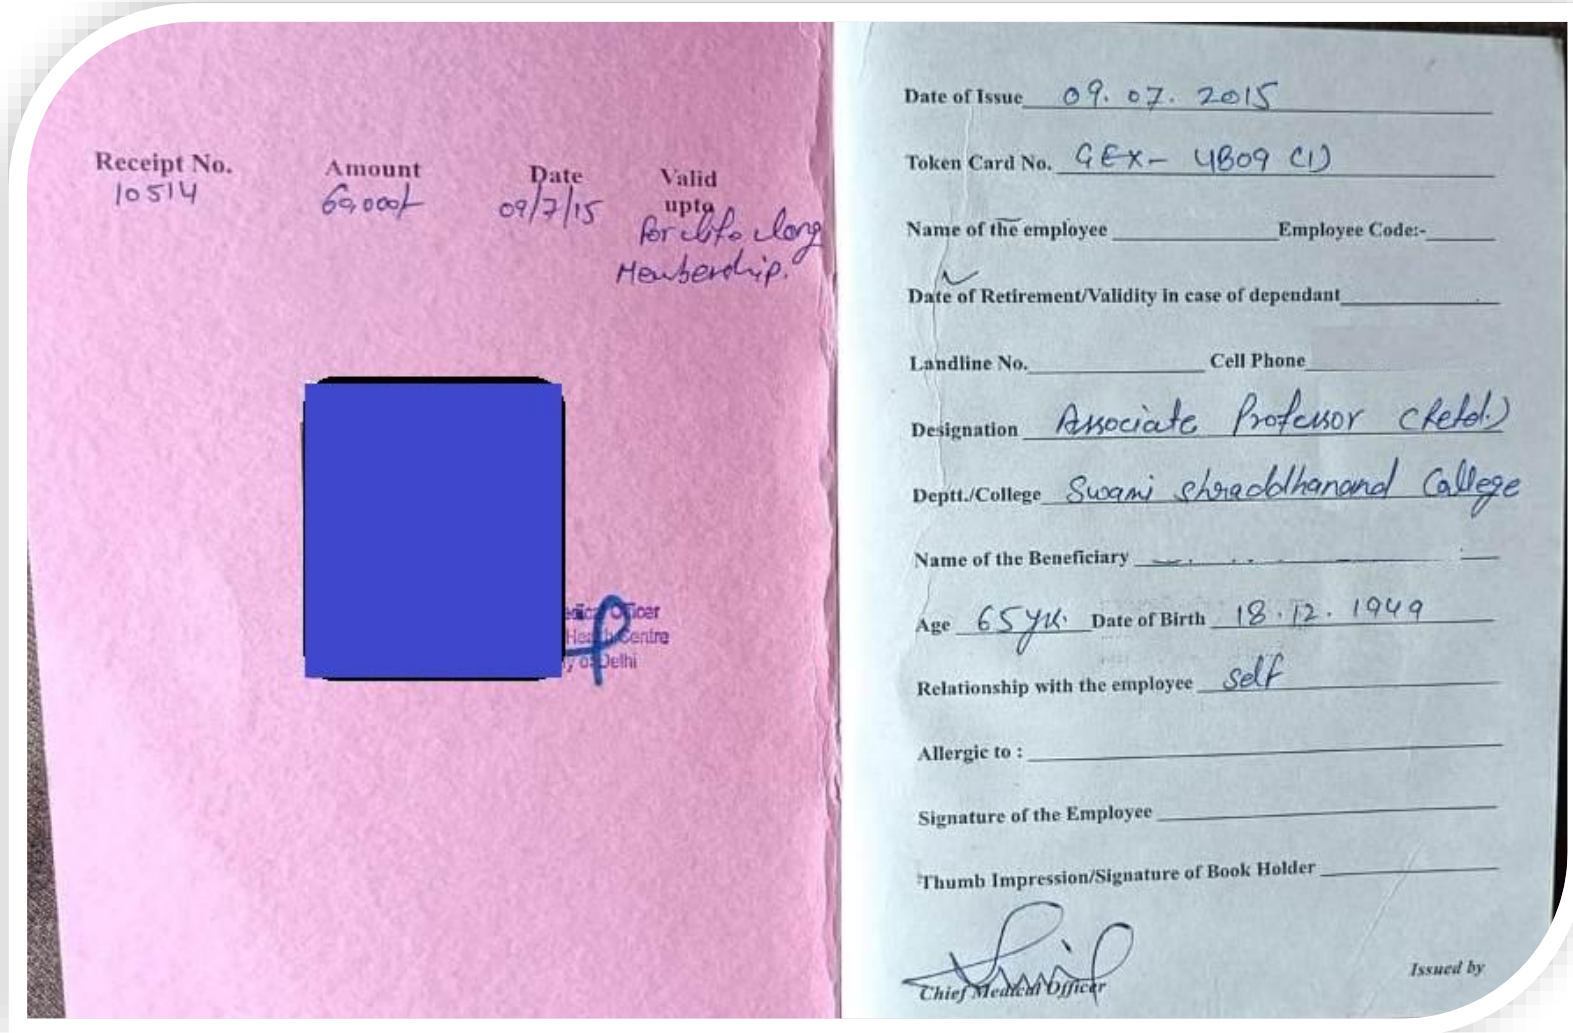 Receipt No. Amount Date Valid upto
10514 60,000/- 09/7/15 for life long
Membership.
Officer
Centre
Delhi
Date of Issue 09.07.2015
Token Card No. GEX- 4809 (1)
Name of the employee Employee Code:-
Date of Retirement/Validity in case of dependant
Landline No. Cell Phone
Designation Associate Professor (Retd.)
Deptt./College Swami Shraddhanand College
Name of the Beneficiary
Age 65 yr. Date of Birth 18.12.1949
Relationship with the employee self
Allergic to :
Signature of the Employee
Thumb Impression/Signature of Book Holder
Chief Medical Officer
Issued by